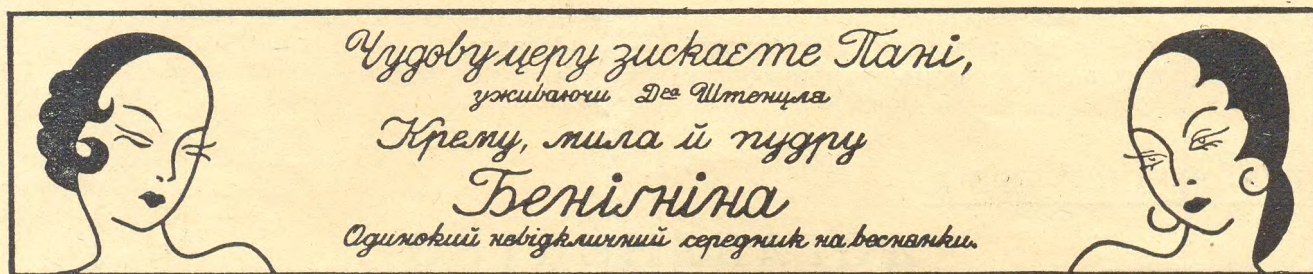 Чудову церу зискаєте Пані,
уживаючи Дра Штенцла
Крему, мила й пудру
Бенігніна
Одинокий невідкличний середник на веснянки.